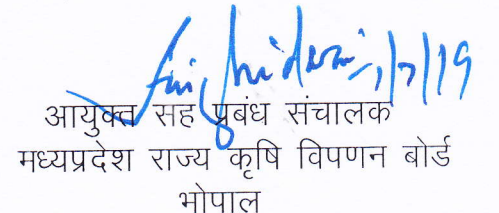 1/7/19
आयुक्त सह प्रबंध संचालक
मध्यप्रदेश राज्य कृषि विपणन बोर्ड
भोपाल